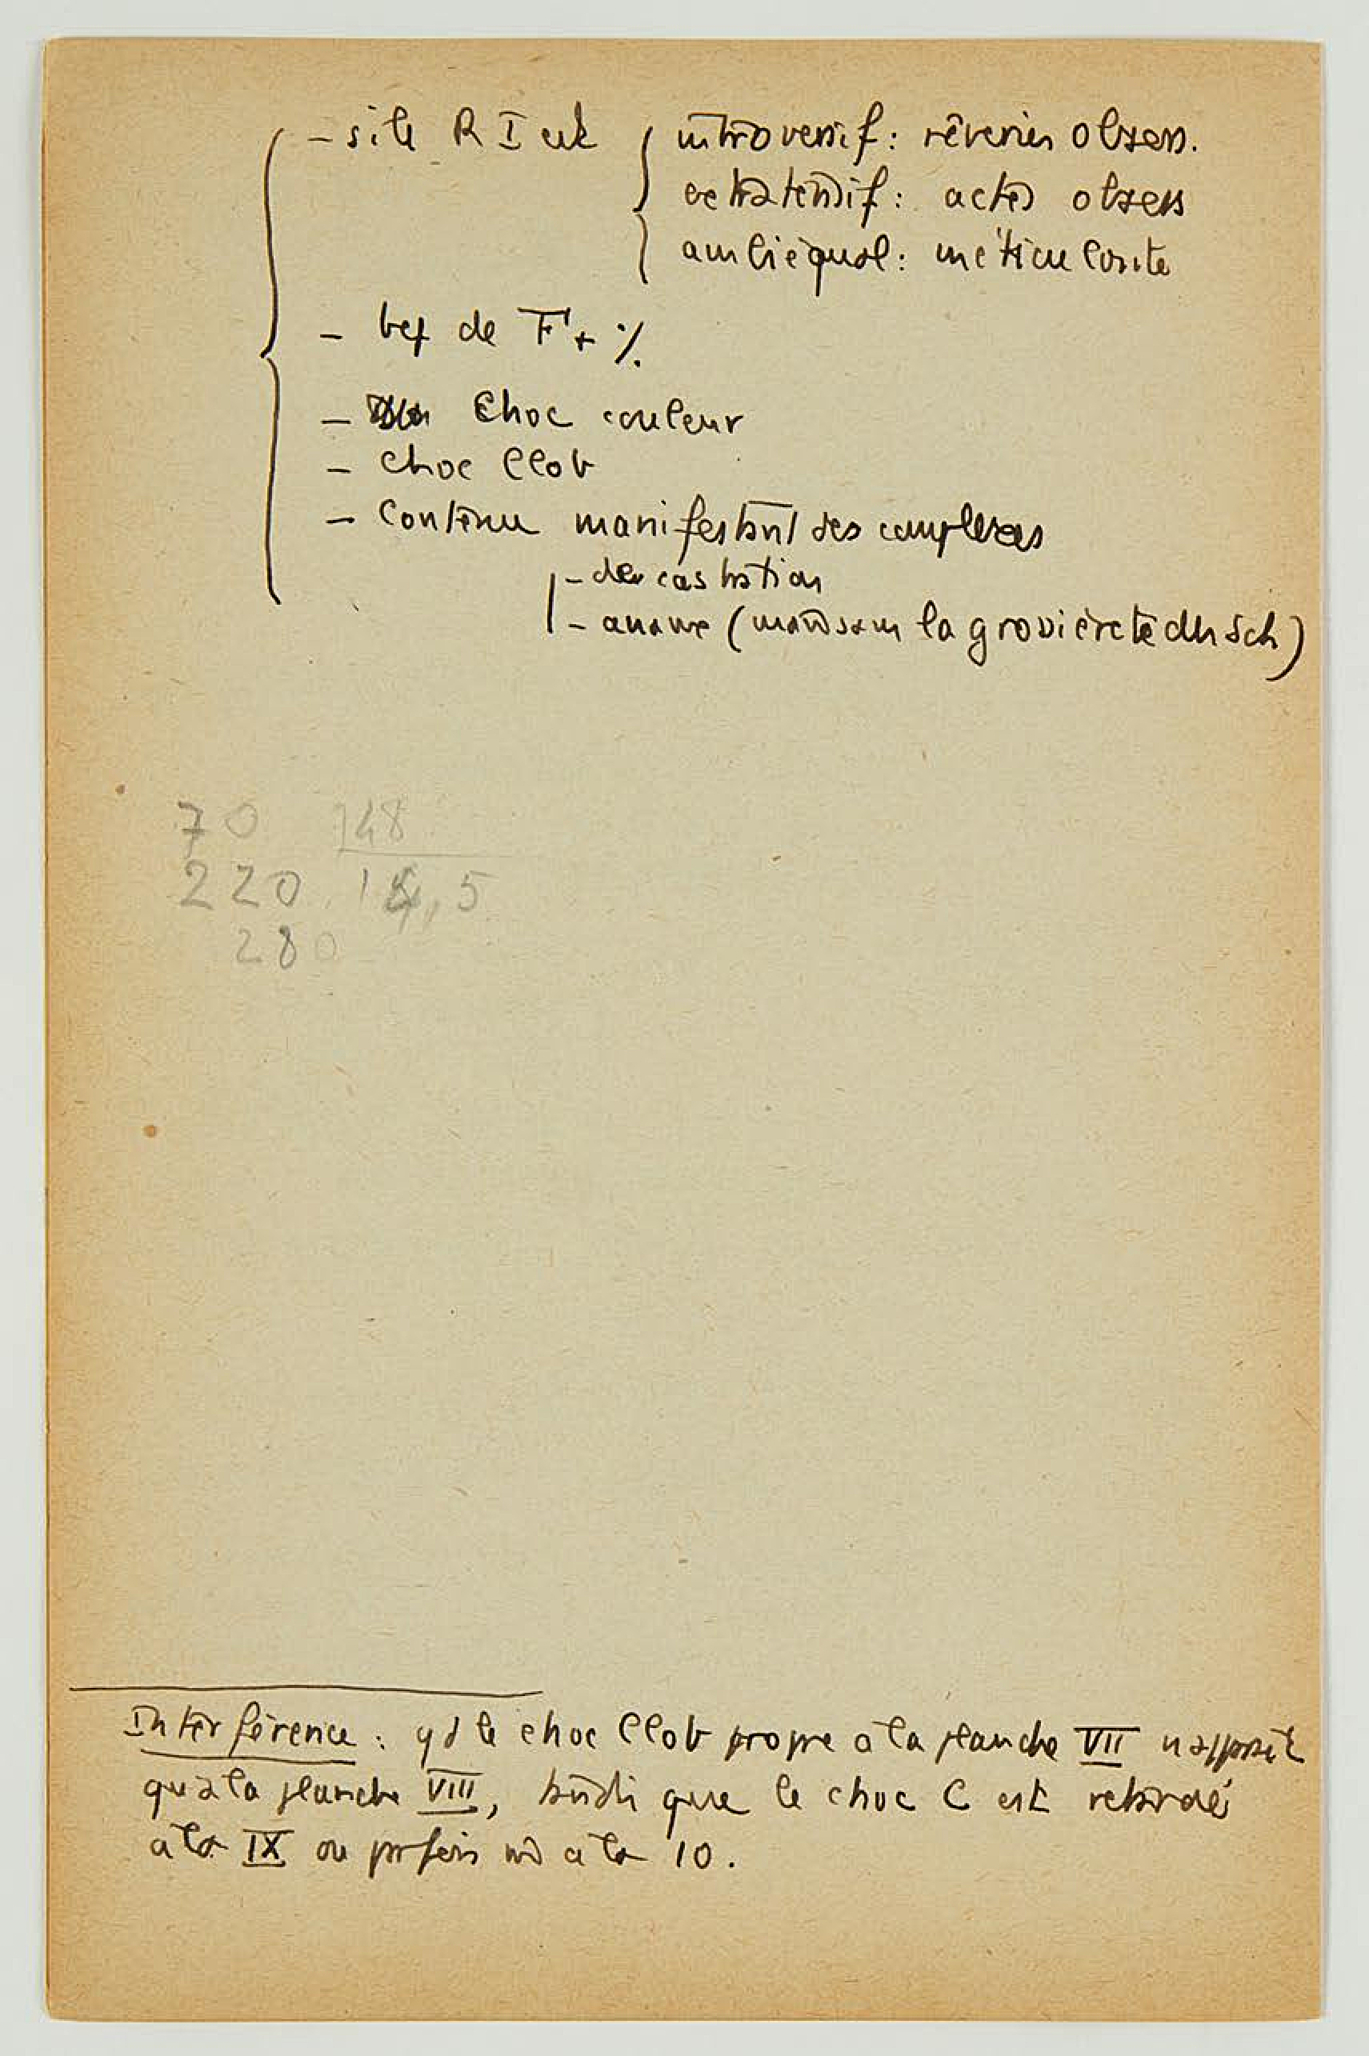 - si le R I est { introversif : rêveries obsess.
extratensif : actes obsess
ambiéqual : méticulosité
- bcp de F+ %.
- choc couleur
- choc Clob
- contenu manifestant des complexes
- de castration
- anaux (mais sans la grossièreté du Sch)
70 148
220 14,5
280
Interférence : qd le choc Clob propre à la planche VII n'apparaît
qu'à la planche VIII, tandis que le choc C est retardé
à la IX ou parfois mê à la 10.